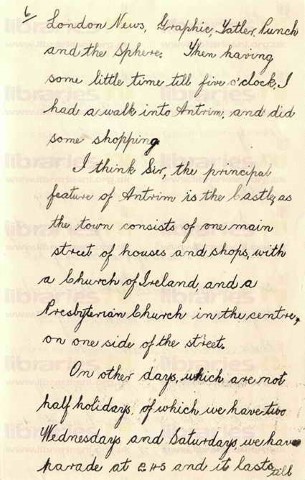 6
London News, Graphic, Tatler, Punch
and the Sphere. Then having
some little time till five o'clock, I
had a walk into Antrim, and did
some shopping
I think Sir, the principal
feature of Antrim is the Castle, as
the town consists of one main
street of houses and shops, with
a Church of Ireland, and a
Presbyterian Church in the centre,
on one side of the street.
On other days, which are not
half holidays, of which we have two
Wednesdays and Saturdays, we have
parade at and it lasts till